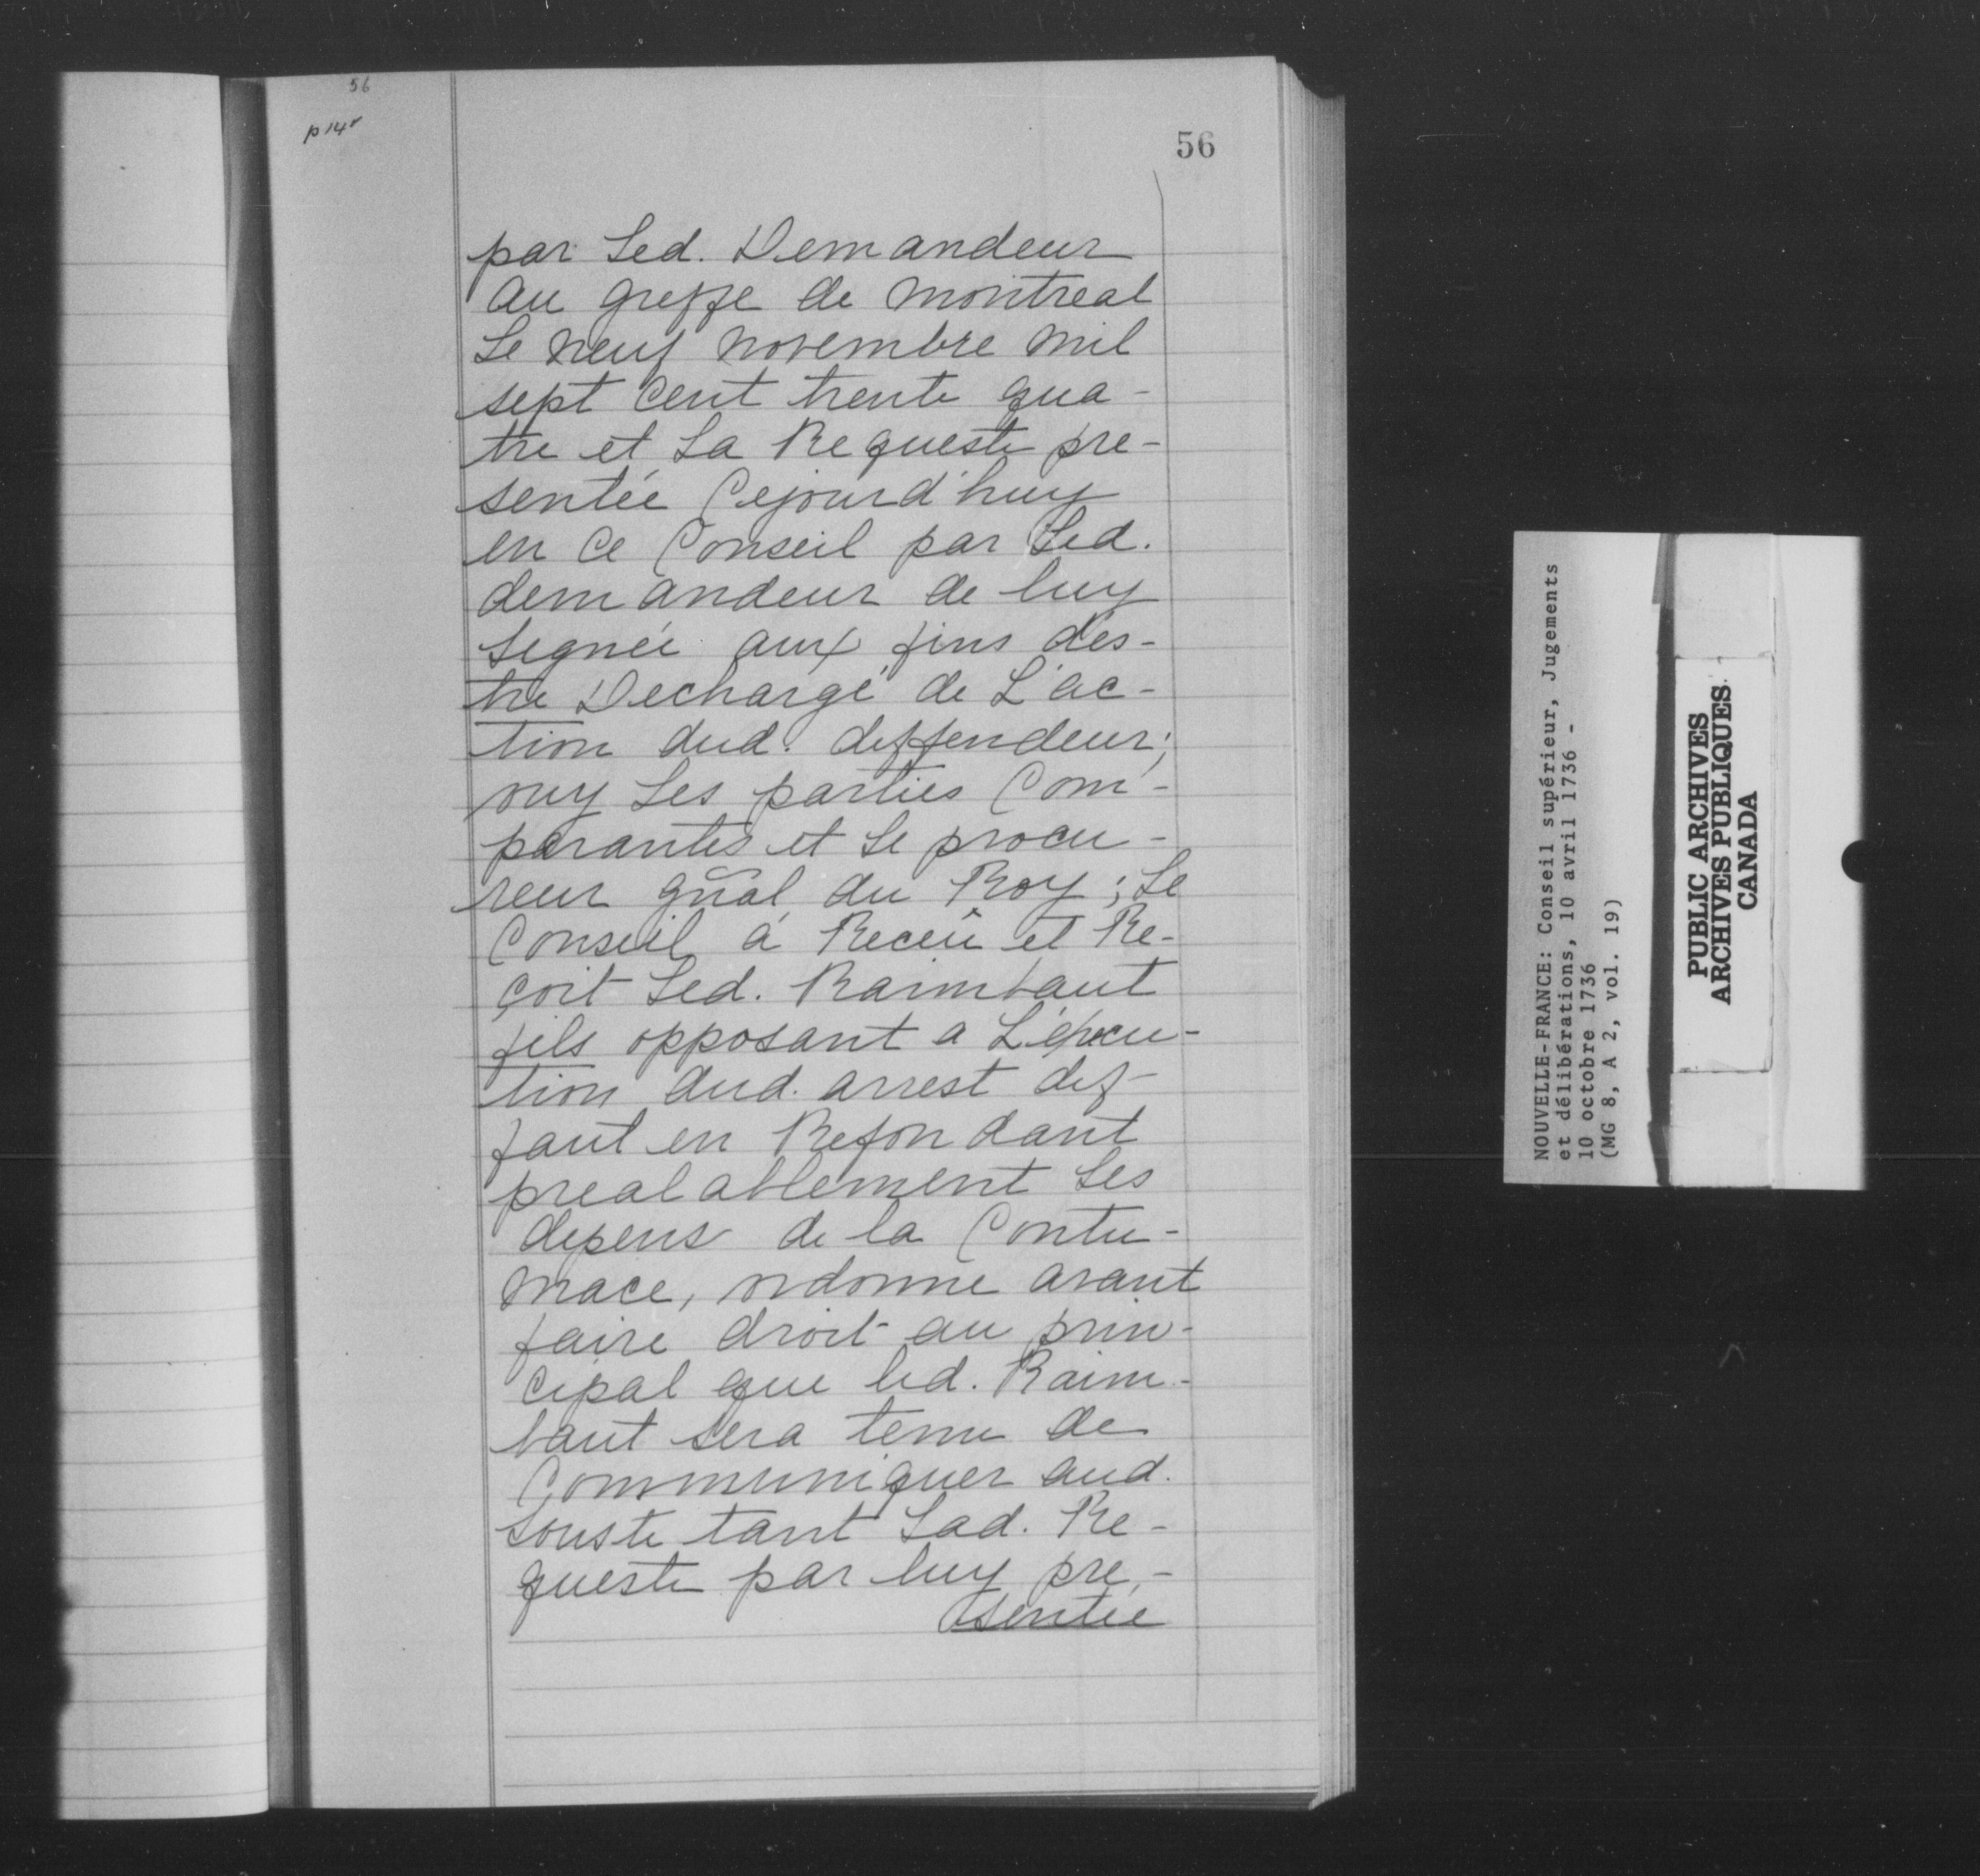 56
p 14r
56
par Led. Demandeur
au greffe de Montreal
Le neuf novembre mil
sept cent trente qua-
tre et La Requeste pre-
sentée Cejourd'huy
en ce Conseil par Led.
demandeur de luy
signée aux fins d'es-
tre Dechargé de L'ac-
tion dud. deffendeur;
ouy Les parties Com-
parantes et Le procu-
reur gñal du Roy; Le
Conseil a Receu et Re-
çoit Led. Raimbaut
fils opposant a L'execu-
tion dud. arrest def-
faut en Refondant
prealablement Les
depens de la Contu-
mace, ordonne avant
faire droit au prin-
cipal que led. Raim-
baut sera tenu de
Communiquer aud.
Souste tant Lad. Re-
queste par luy pre-
sentée
NOUVELLE-FRANCE: Conseil supérieur, Jugements
et délibérations, 10 avril 1736 -
10 octobre 1736
(MG 8, A 2, vol. 19)
PUBLIC ARCHIVES
ARCHIVES PUBLIQUES
CANADA